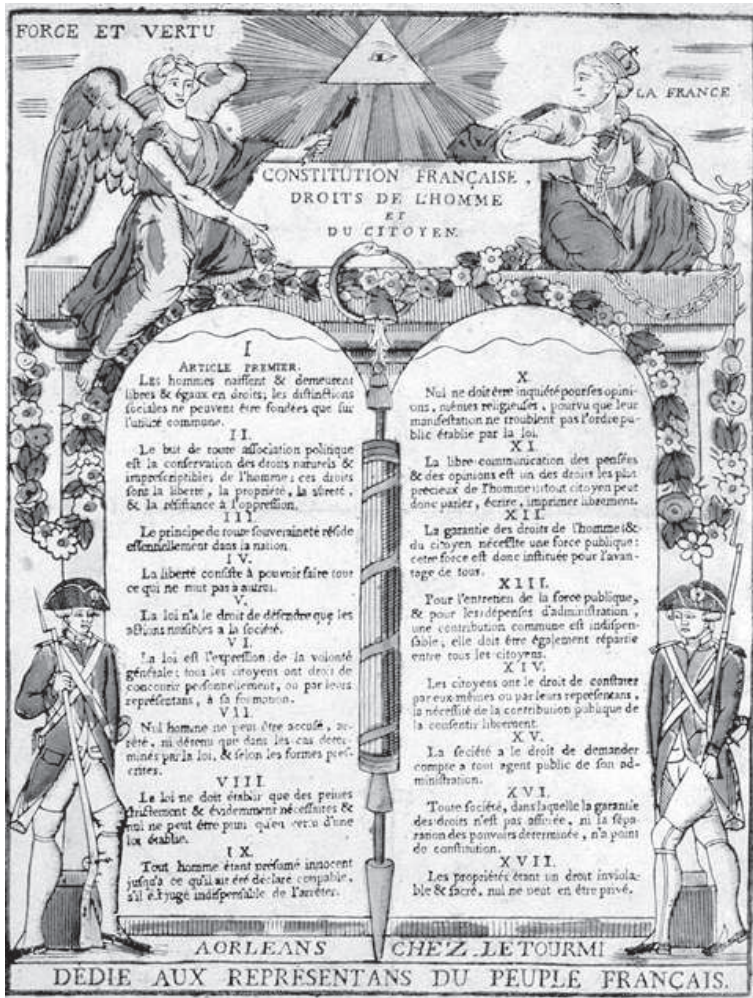 FORCE ET VERTU
LA FRANCE
CONSTITUTION FRANÇAISE,
DROITS DE L'HOMME
ET
DU CITOYEN.
I
ARTICLE PREMIER.
LES hommes naissent & demeurent
libres & égaux en droits; les distinctions
sociales ne peuvent être fondées que sur
l'utilité commune.
II.
Le but de toute association politique
est la conservation des droits naturels &
imprescriptibles de l'homme; ces droits
sont la liberté, la propriété, la sûreté,
& la résistance à l'oppression.
III.
Le principe de toute souveraineté réside
essennellement dans la nation.
IV.
La liberté consiste à pouvoir faire tout
ce qui ne nuit pas à autrui.
V.
La loi n'a le droit de défendre que les
actions nuisibles a la société.
VI.
La loi est l'expression de la volonté
générale; tous les citoyens ont droit de
concourir personnellement, ou par leurs
représentans, à sa formation.
VII.
Nul homme ne peut être accusé, ar-
rêté, ni détenu que dans les cas deter-
minés par la loi, & selon les formes pres-
crites.
VIII.
La loi ne doit établir que des peines
strictement & évidemment nécessaires &
nul ne peut être puni qu'en vertu d'une
loi établie.
IX.
Tout homme étant présumé innocent
jusqu'a ce qu'il ait été déclaré coupable,
s'il est jugé indispensable de l'arrêter.
X.
Nul ne doit être inquiété pour ses opini-
ons, mêmes religieuses, pourvu que leur
manifestation ne troublent pas l'ordre pu-
blic établie par la loi.
XI.
La libre communication des pensées
& des opinions est un des droits les plus
précieux de l'homme: tout citoyen peut
donc parler, écrire, imprimer librement.
XII.
La garantie des droits de l'homme &
du citoyen nécessite une force publique:
cette force est donc instituée pour l'avan-
tage de tous.
XIII.
Pour l'entretien de la force publique,
& pour les dépenses d'administration,
une contribution commune est indispen-
sable; elle doit être également répartie
entre tous les citoyens.
XIV.
Les citoyens ont le droit de constater
par eux-mêmes ou par leurs représentans,
la nécessité de la contribution publique de
la consentir librement.
XV.
La société a le droit de demander
compte a tout agent public de son ad-
ministration.
XVI.
Toute société, dans laquelle la garantie
des droits n'est pas assurée, ni la sépa-
ration des pouvoirs determinée, n'a point
de constitution.
XVII.
Les propriétés étant un droit inviola-
ble & sacré, nul ne peut en être privé.
A ORLEANS CHEZ LETOURMI
DÉDIÉ AUX REPRÉSENTANS DU PEUPLE FRANÇAIS.